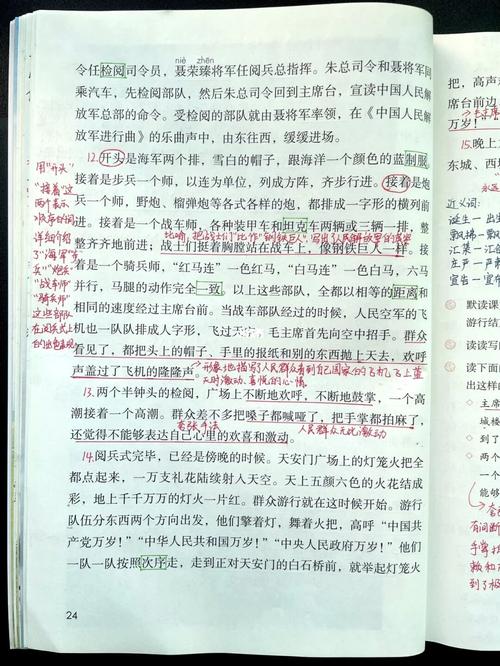 niè zhēn
令任检阅司令员，聂荣臻将军任阅兵总指挥。朱总司令和聂将军同
乘汽车，先检阅部队，然后朱总司令回到主席台，宣读中国人民解
放军总部的命令。受检阅的部队就由聂将军率领，在《中国人民解
放军进行曲》的乐曲声中，由东往西，缓缓进场。
12.开头是海军两个排，雪白的帽子，跟海洋一个颜色的蓝制服。
接着是步兵一个师，以连为单位，列成方阵，齐步行进。接着是炮
兵一个师，野炮、榴弹炮等各式各样的炮，都排成一字形的横列前
进。接着是一个战车师，各种装甲车和坦克车两辆或三辆一排，
整整齐齐地前进；战士们挺着胸膛站在战车上，像钢铁巨人一样。
接着是一个骑兵师，“红马连”一色红马，“白马连”一色白马，六马
并行，马腿的动作完全一致。以上这些部队，全都以相等的距离和
相同的速度经过主席台前。当战车部队经过的时候，人民空军的飞
机也一队队排成人字形，飞过天空。毛主席首先向空中招手。群众
看见了，都把头上的帽子、手里的报纸和别的东西抛上天去，欢呼
声盖过了飞机的隆隆声。
13.两个半钟头的检阅，广场上不断地欢呼，不断地鼓掌，一个高
潮接着一个高潮。群众差不多把嗓子都喊哑了，把手掌都拍麻了，
还觉得不能够表达自己心里的欢喜和激动。
夸张手法
人民群众无比激动
14.阅兵式完毕，已经是傍晚的时候。天安门广场上的灯笼火把全
都点起来，一万支礼花陆续射入天空。天上五颜六色的火花结成
彩，地上千千万万的灯火一片红。群众游行就在这时候开始。游行
队伍分东西两个方向出发，他们擎着灯，舞着火把，高呼“中国共
产党万岁！”“中华人民共和国万岁！”“中央人民政府万岁！”他们
一队一队按照次序走，走到正对天安门的白石桥前，就举起灯笼火
24
用“开头”
“接着”这
详细介绍
了“海军”“步
兵”“炮兵”
“战车师”
“骑兵师”
这些部队
在阅兵式上
把，高声
席台前边
万岁！”
15.晚上
东城、西城
近义词：
宣告一宣布
默读课
游行结
读句子
读下面
出这样的
主席
城楼
两个
一个
能够